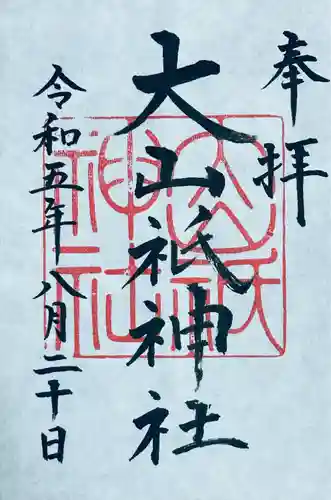 奉拝
大山祇神社
令和五年八月二十日
大山祇神社